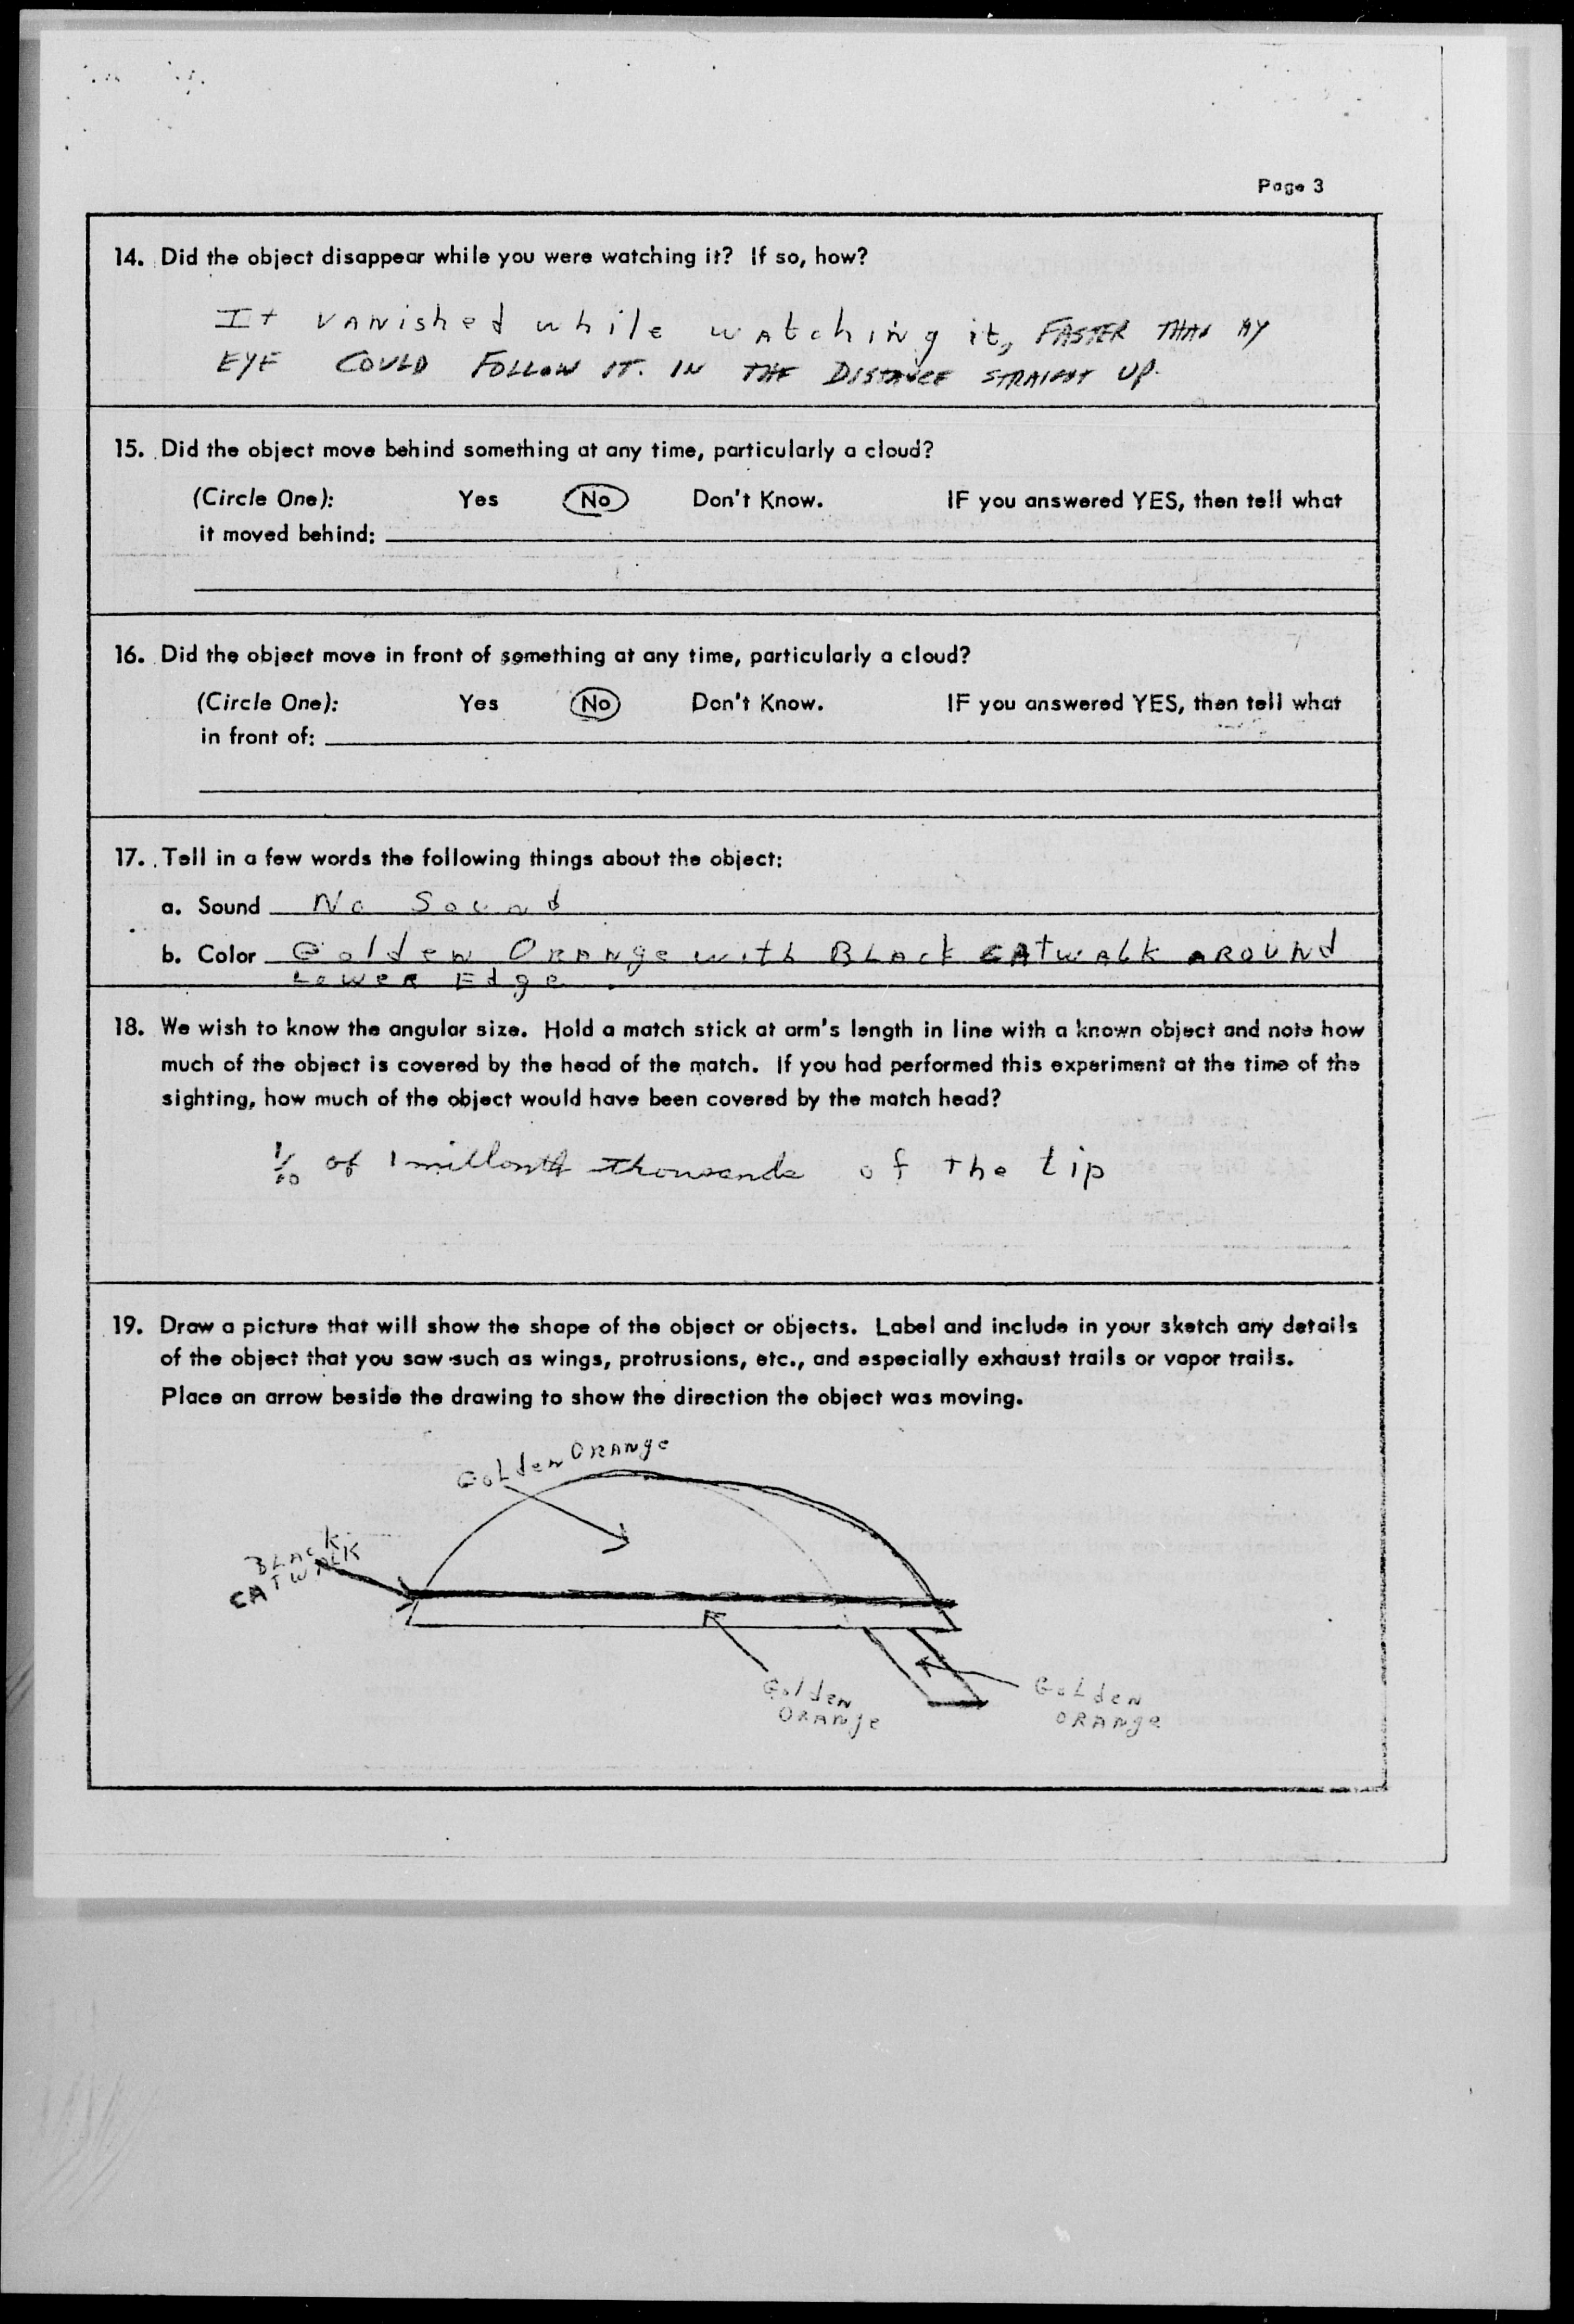 Page 3
14. Did the object disappear while you were watching it? If so, how?
It vanished while watching it, FASTER THAN MY
EYE COULD FOLLOW IT. IN THE DISTANCE STRAIGHT UP.
15. Did the object move behind something at any time, particularly a cloud?
(Circle One): Yes No Don't Know. IF you answered YES, then tell what
it moved behind:
16. Did the object move in front of something at any time, particularly a cloud?
(Circle One): Yes No Don't Know. IF you answered YES, then tell what
in front of:
17. Tell in a few words the following things about the object:
a. Sound No Sound
b. Color Golden Orange with Black CATwalk AROUND
Lower Edge.
18. We wish to know the angular size. Hold a match stick at arm's length in line with a known object and note how
much of the object is covered by the head of the match. If you had performed this experiment at the time of the
sighting, how much of the object would have been covered by the match head?
of 1 millonth thousands of the tip
19. Draw a picture that will show the shape of the object or objects. Label and include in your sketch any details
of the object that you saw such as wings, protrusions, etc., and especially exhaust trails or vapor trails.
Place an arrow beside the drawing to show the direction the object was moving.
Golden ORANge
BLACK
CATWALK
Golden
ORANge
Golden
ORANge